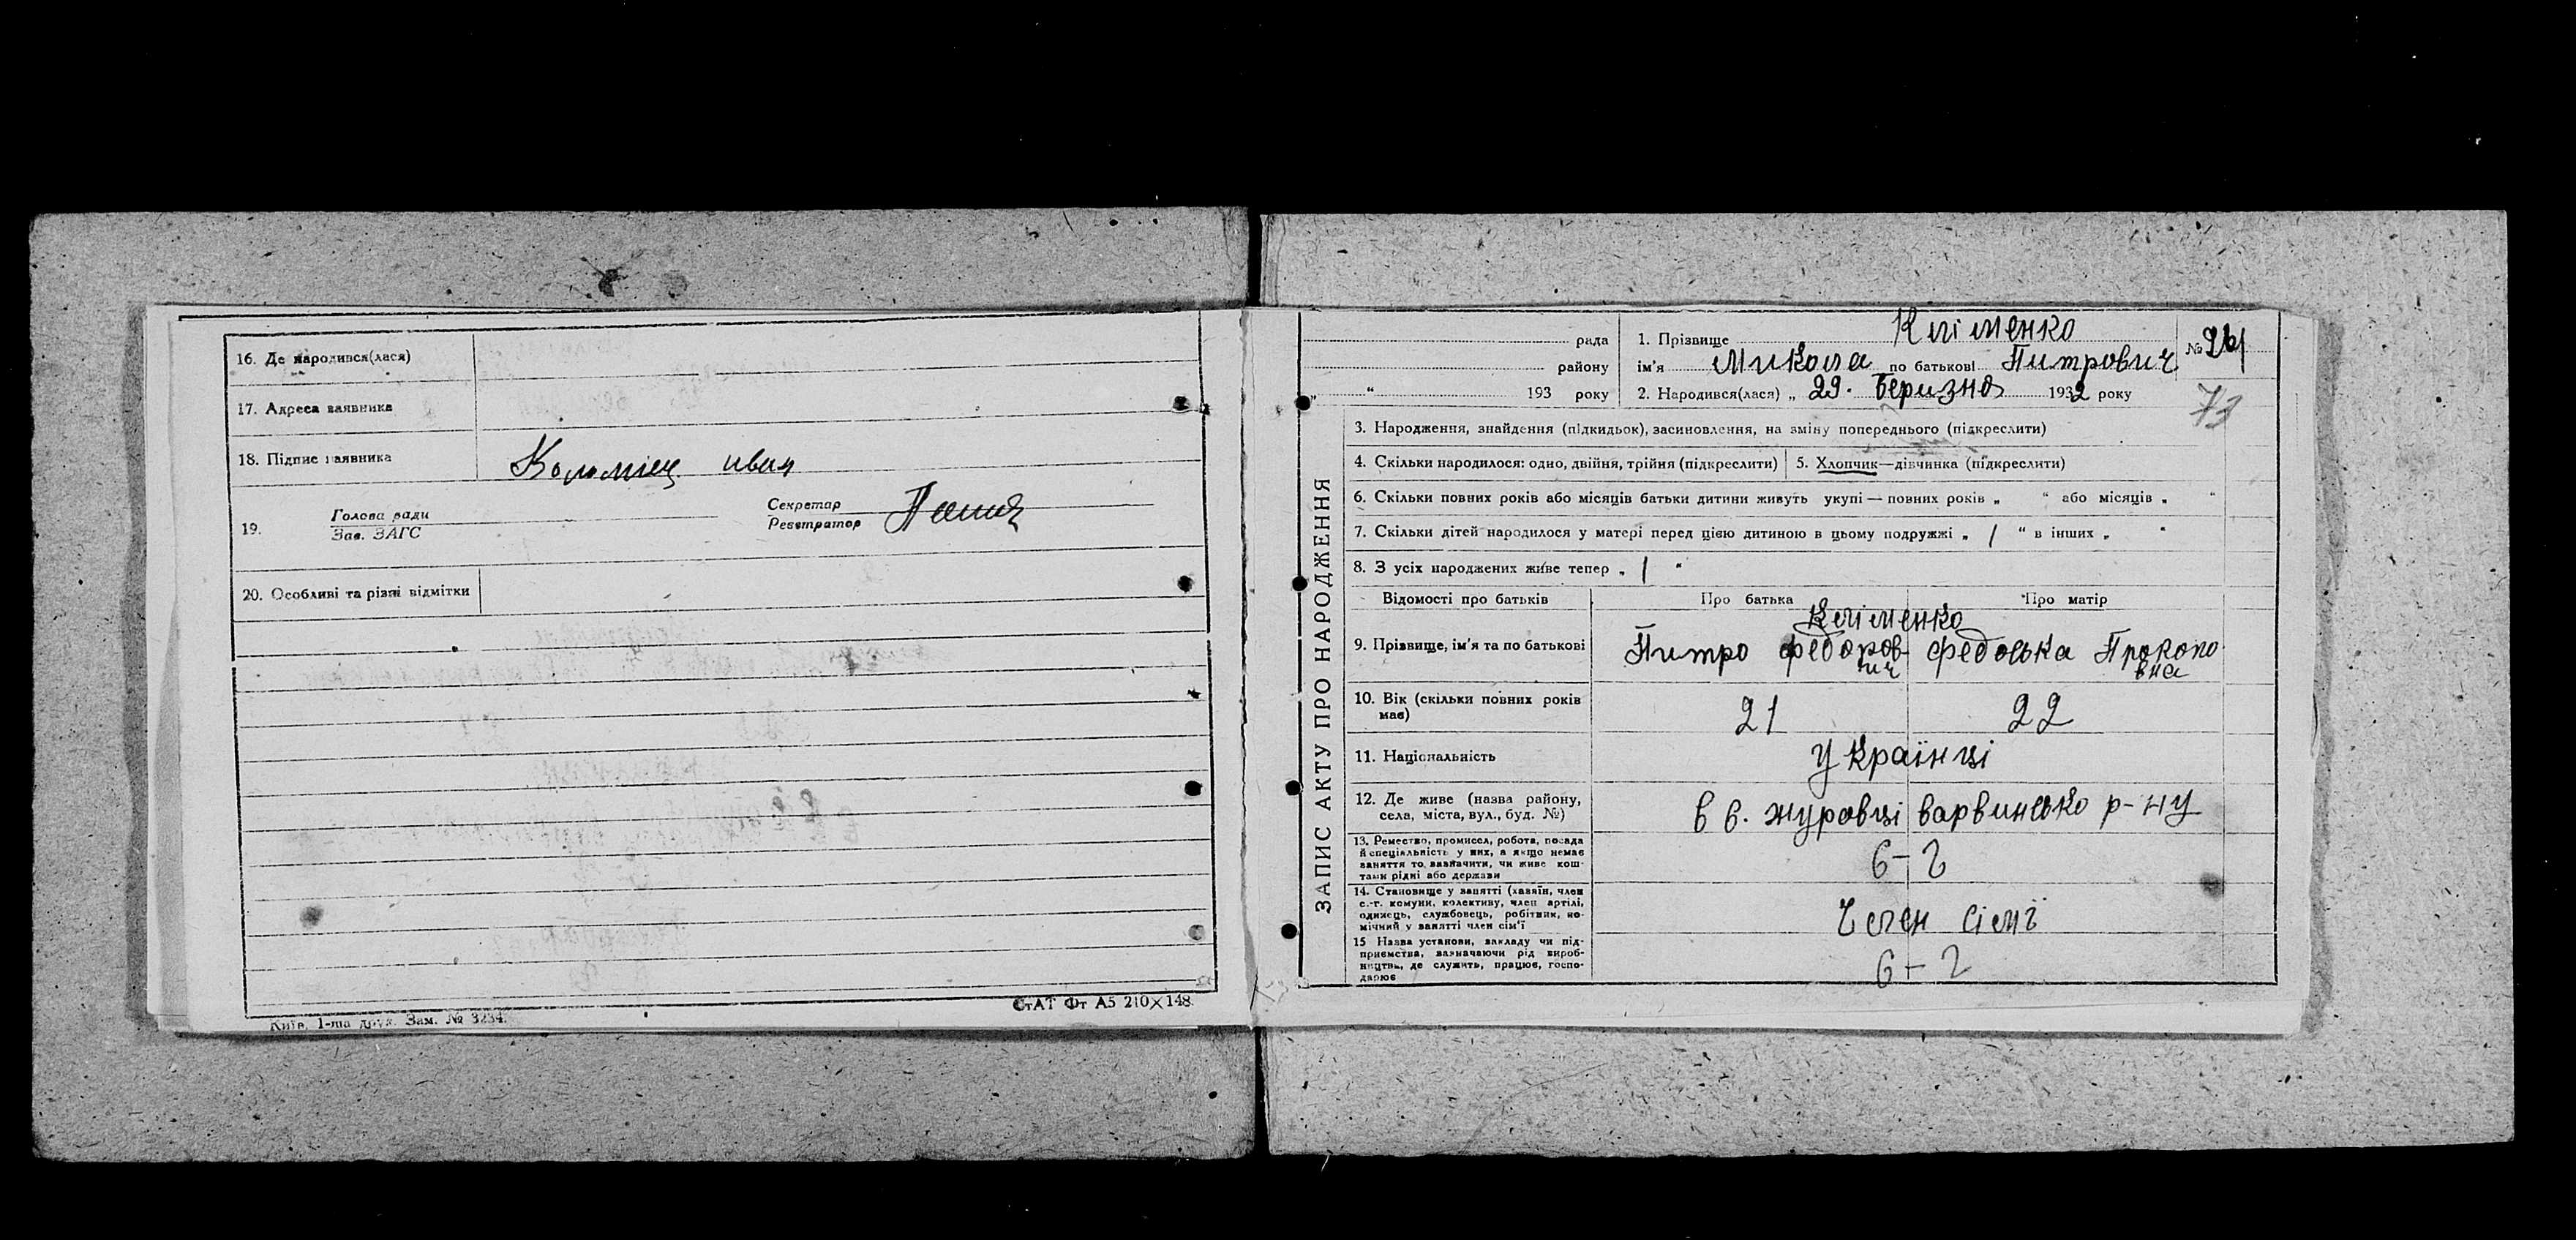 16. Де народився(лася)
17. Адреса заявника
18. Підпис заявника Коломіец иван
19. Голова ради
Зав. ЗАГС
Секретар
Реєстратор
20. Особливі та різні відмітки
СтАТ Фт А5 210×148.
Київ. 1-ша друк. Зам. № 3234.
ЗАПИС АКТУ ПРО НАРОДЖЕННЯ
рада
району
„ “ 193 року
1. Прізвище Кліменко
ім'я Микола по батькові Питрович
№
2. Народився(лася) „ 29. Беризня 1932 року
73
3. Народження, знайдення (підкидьок), засиновлення, на зміну попереднього (підкреслити)
4. Скільки народилося: одно, двійня, трійня (підкреслити) 5. Хлопчик—дівчинка (підкреслити)
6. Скільки повних років або місяців батьки дитини живуть укупі — повних років „ “ або місяців „ “
7. Скільки дітей народилося у матері перед цією дитиною в цьому подружжі „ 1 “ в інших „ “
8. З усіх народжених живе тепер „ 1 “
Відомості про батьків Про батька Про матір
Кліменко
9. Прізвище, ім'я та по батькові Питро Федоров- Федоська Прокопо
ич вна
10. Вік (скільки повних років 21 22
має)
11. Національність Українці
12. Де живе (назва району, в с. журовці варвинсько р-ну
села, міста, вул., буд. №)
13. Ремество, промисел, робота, посада
й спеціальність у них, а якщо немає
заняття то зазначити, чи живе кош-
тами рідні або держави
с-г
14. Становище у занятті (хазяїн, член
с.-г. комуни, колективу, член артілі,
одинець, службовець, робітник, по-
мічний у занятті член сім'ї
Член сімї
15 Назва установи, закладу чи під-
приємства, зазначаючи рід вироб-
ництва, де служить, працює, госпо-
дарює
с-г